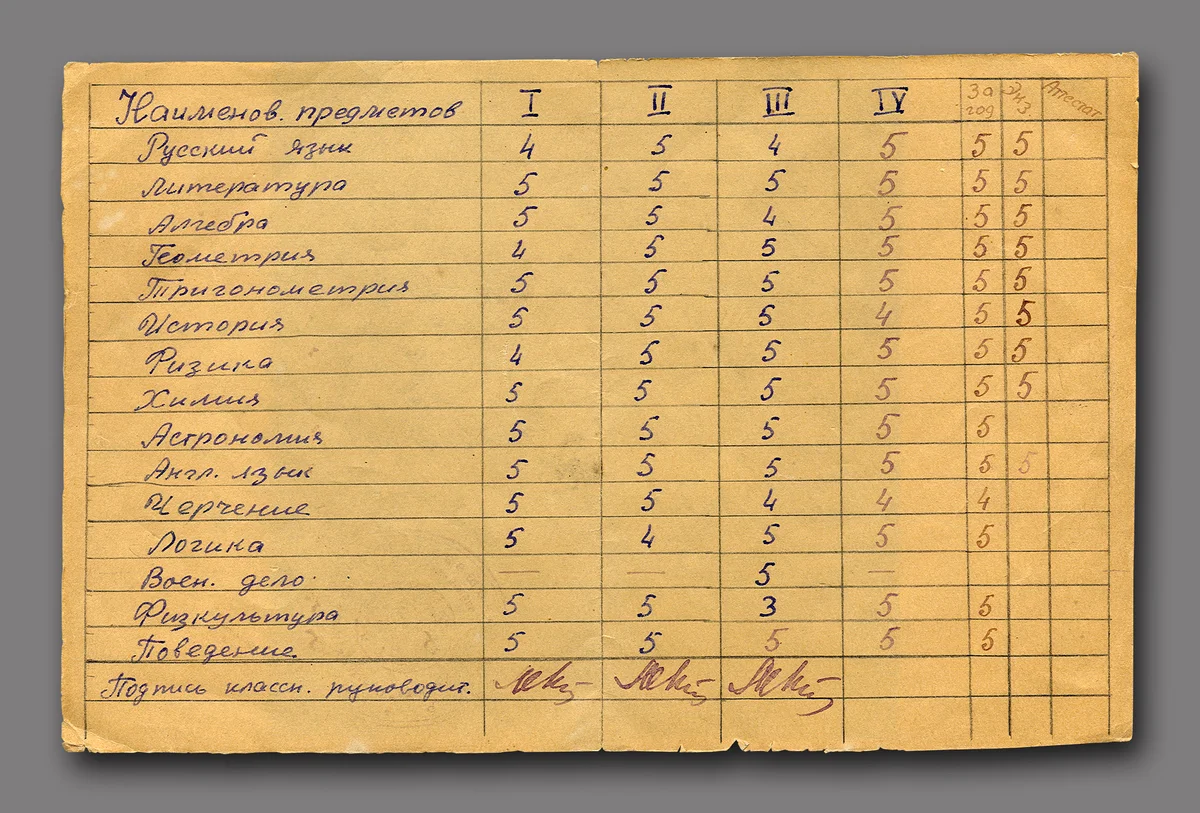 Наименов. предметов I II III IV За год Экз Аттестат
Русский язык 4 5 4 5 5 5
Литература 5 5 5 5 5 5
Алгебра 5 5 4 5 5 5
Геометрия 4 5 5 5 5 5
Тригонометрия 5 5 5 5 5 5
История 5 5 5 4 5 5
Физика 4 5 5 5 5 5
Химия 5 5 5 5 5 5
Астрономия 5 5 5 5 5
Англ. язык 5 5 5 5 5 5
Черчение 5 5 4 4 4
Логика 5 4 5 5 5
Воен. дело — — 5 —
Физкультура 5 5 3 5 5
Поведение 5 5 5 5 5
Подпись классн. руководит.